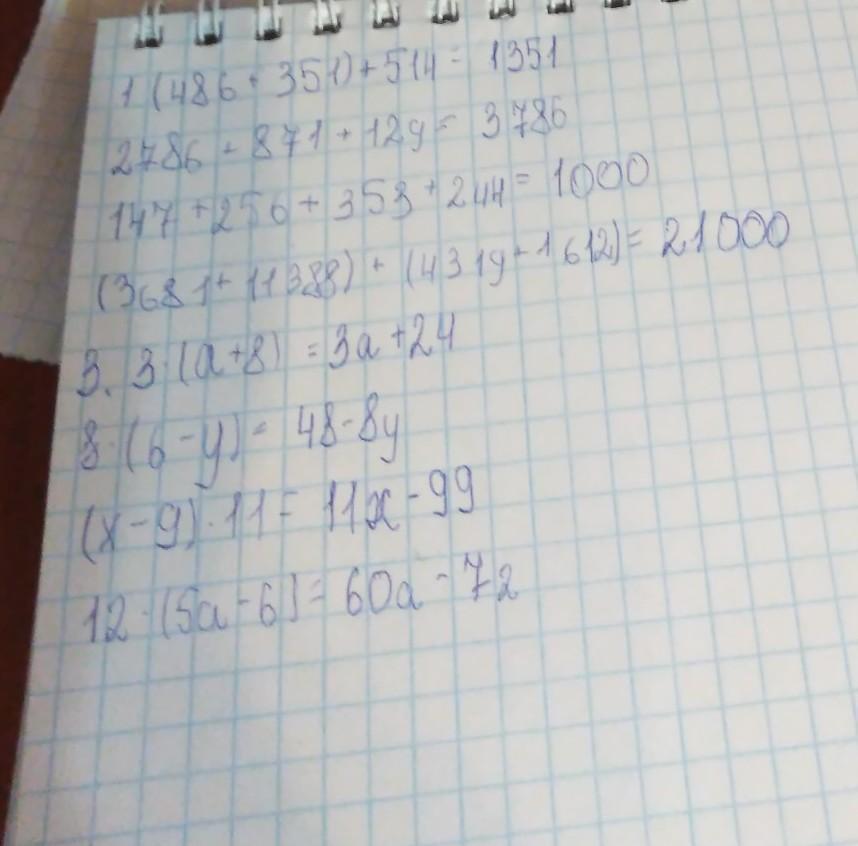 1 (486 + 351) + 514 = 1351
2786 + 871 + 129 = 3786
147 + 256 + 353 + 244 = 1000
(3681 + 11388) + (4319 + 1612) = 21000
3. 3·(a+8) = 3a+24
8·(6-y) = 48-8y
(x-9)·11 = 11x-99
12·(5a-6) = 60a-72